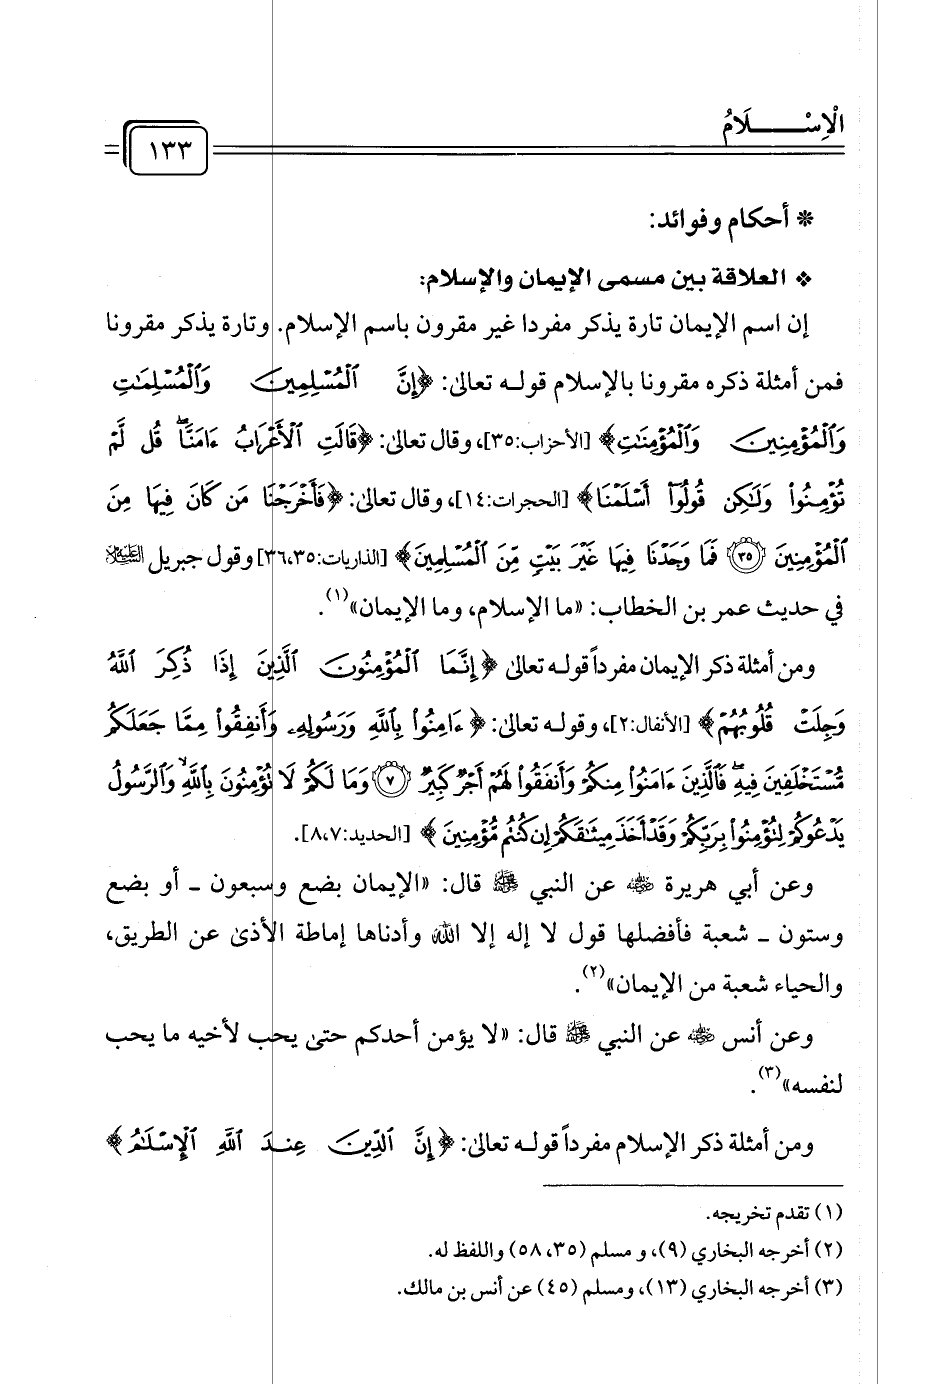 الْإِسْـــــلَامُ
١٣٣
* أحكام وفوائد:
❖ العلاقة بين مسمى الإيمان والإسلام:
إن اسم الإيمان تارة يذكر مفردا غير مقرون باسم الإسلام. وتارة يذكر مقرونا
فمن أمثلة ذكره مقرونا بالإسلام قوله تعالىٰ: ﴿إِنَّ ٱلْمُسْلِمِينَ وَٱلْمُسْلِمَٰتِ
وَٱلْمُؤْمِنِينَ وَٱلْمُؤْمِنَٰتِ﴾ [الأحزاب:٣٥]، وقال تعالىٰ: ﴿قَالَتِ ٱلْأَعْرَابُ ءَامَنَّاۖ قُل لَّمْ
تُؤْمِنُواْ وَلَٰكِن قُولُوٓاْ أَسْلَمْنَا﴾ [الحجرات:١٤]، وقال تعالىٰ: ﴿فَأَخْرَجْنَا مَن كَانَ فِيهَا مِنَ
ٱلْمُؤْمِنِينَ ٣٥ فَمَا وَجَدْنَا فِيهَا غَيْرَ بَيْتٍ مِّنَ ٱلْمُسْلِمِينَ﴾ [الذاريات:٣٦،٣٥] وقول جبريل عليه السلام
في حديث عمر بن الخطاب: «ما الإسلام، وما الإيمان»(١).
ومن أمثلة ذكر الإيمان مفرداً قوله تعالىٰ ﴿إِنَّمَا ٱلْمُؤْمِنُونَ ٱلَّذِينَ إِذَا ذُكِرَ ٱللَّهُ
وَجِلَتْ قُلُوبُهُمْ﴾ [الأنفال:٢]، وقوله تعالىٰ: ﴿ءَامِنُواْ بِٱللَّهِ وَرَسُولِهِۦ وَأَنفِقُواْ مِمَّا جَعَلَكُم
مُّسْتَخْلَفِينَ فِيهِۖ فَٱلَّذِينَ ءَامَنُواْ مِنكُمْ وَأَنفَقُواْ لَهُمْ أَجْرٌ كَبِيرٌ ٧ وَمَا لَكُمْ لَا تُؤْمِنُونَ بِٱللَّهِۙ وَٱلرَّسُولُ
يَدْعُوكُمْ لِتُؤْمِنُواْ بِرَبِّكُمْ وَقَدْ أَخَذَ مِيثَٰقَكُمْ إِن كُنتُم مُّؤْمِنِينَ﴾ [الحديد:٨،٧].
وعن أبي هريرة رضي الله عنه عن النبي ﷺ قال: «الإيمان بضع وسبعون ـ أو بضع
وستون ـ شعبة فأفضلها قول لا إله إلا الله وأدناها إماطة الأذىٰ عن الطريق،
والحياء شعبة من الإيمان»(٢).
وعن أنس رضي الله عنه عن النبي ﷺ قال: «لا يؤمن أحدكم حتىٰ يحب لأخيه ما يحب
لنفسه»(٣).
ومن أمثلة ذكر الإسلام مفرداً قوله تعالىٰ: ﴿إِنَّ ٱلدِّينَ عِندَ ٱللَّهِ ٱلْإِسْلَٰمُ﴾
(١) تقدم تخريجه.
(٢) أخرجه البخاري (٩)، و مسلم (٣٥، ٥٨) واللفظ له.
(٣) أخرجه البخاري (١٣)، ومسلم (٤٥) عن أنس بن مالك.